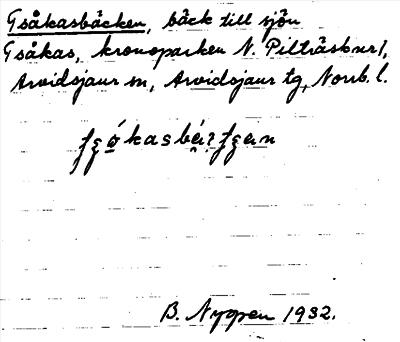 Tsåkasbäcken, bäck till sjön
Tsåkas, kronoparken N. Pilträsk nr 1,
Arvidsjaur sn, Arvidsjaur tg, Norrb. l.
B. Nygren 1932.